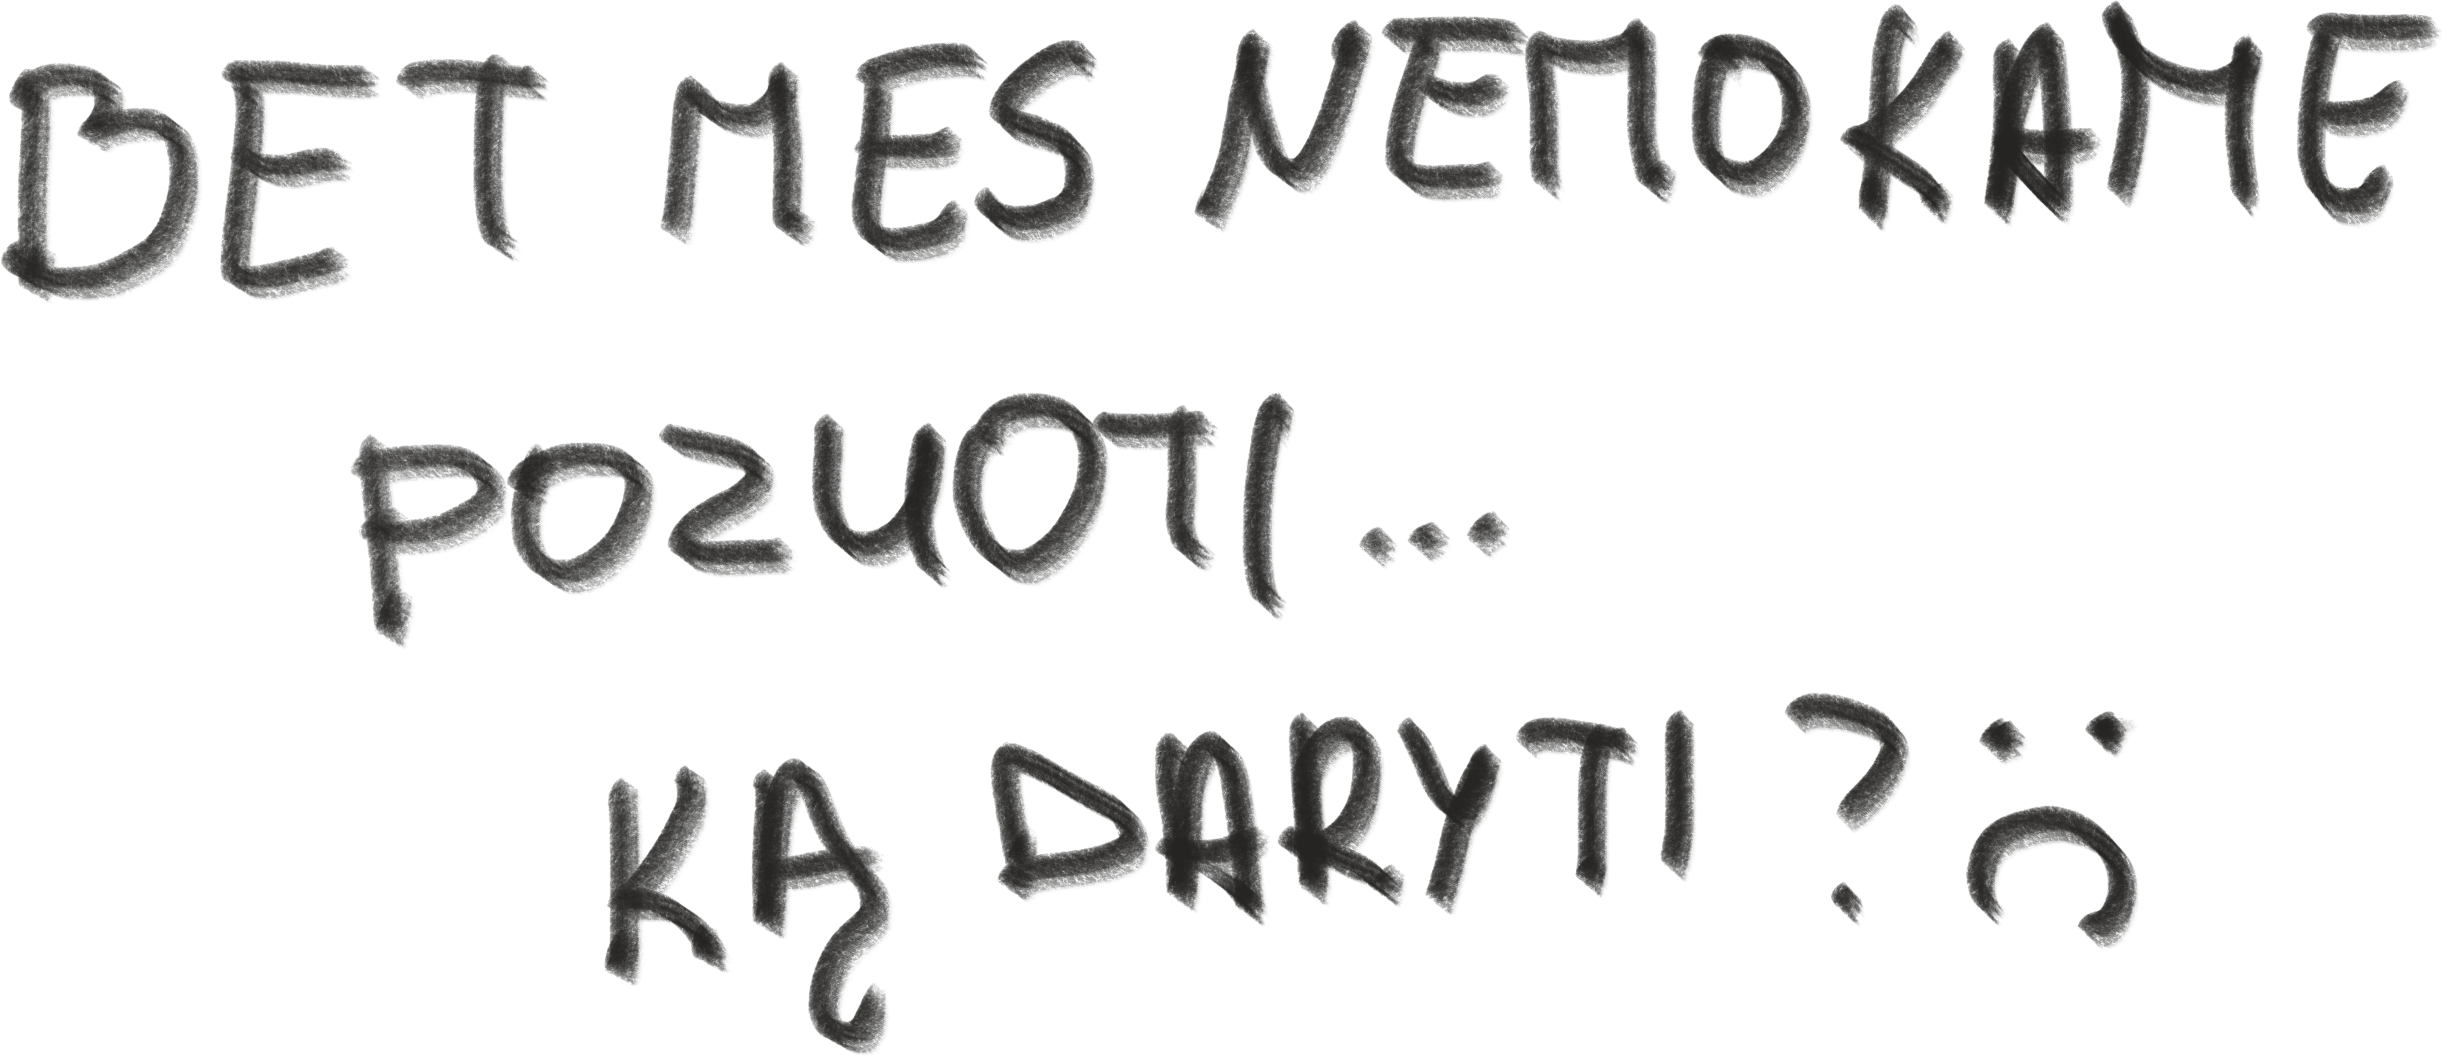 BET MES NEMOKAME
POZUOTI...
KĄ DARYTI? :(